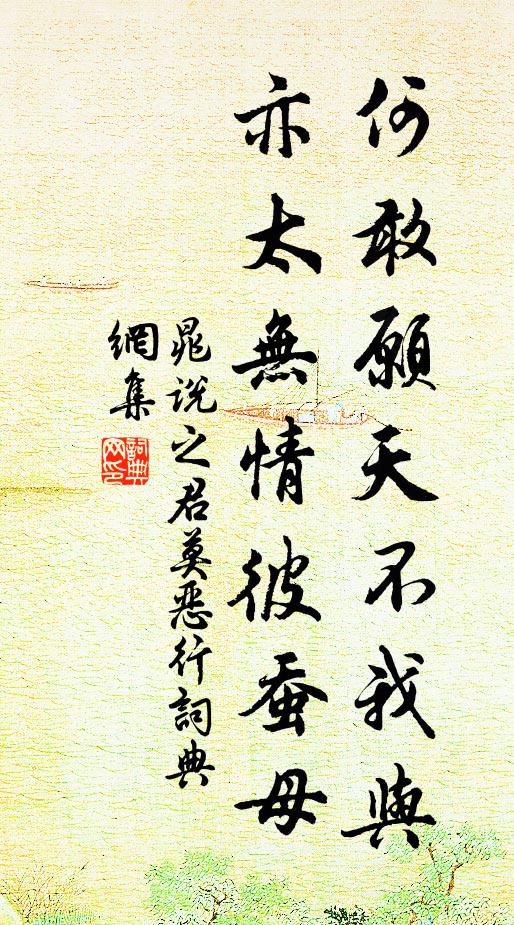 何敢願天不我與
亦太無情彼蚕母
晁說之君莫惡行詞典
網集
詞典
网印